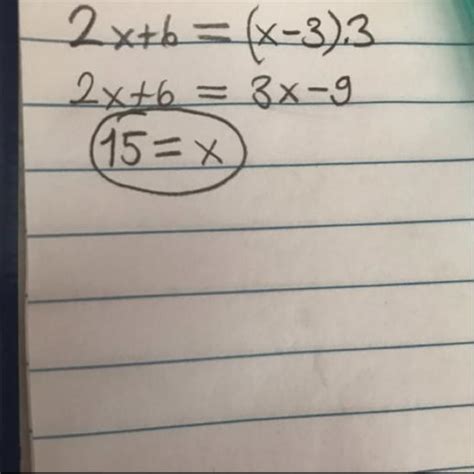 2x+6 = (x-3).3
2x+6 = 3x-9
15 = x